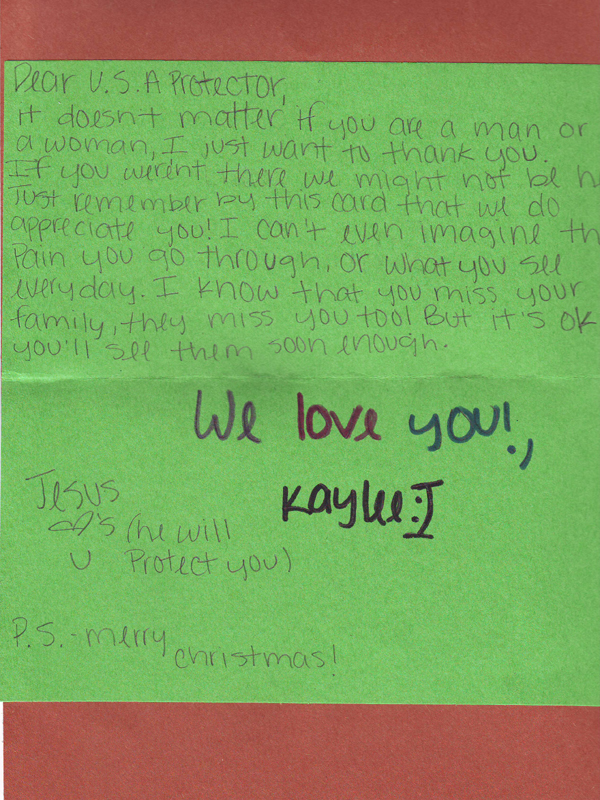 Dear U.S.A Protector,
it doesn't matter if you are a man or
a woman, I just want to thank you.
If you werent there we might not be h
Just remember by this card that we do
appreciate you! I can't even imagine th
Pain you go through, or what you see
everyday. I know that you miss your
family, they miss you too! But it's ok
you'll see them soon enough.
We love you!,
Kaylee :I
Jesus
♡'s (he will
U Protect you)
P.S.-merry
christmas!